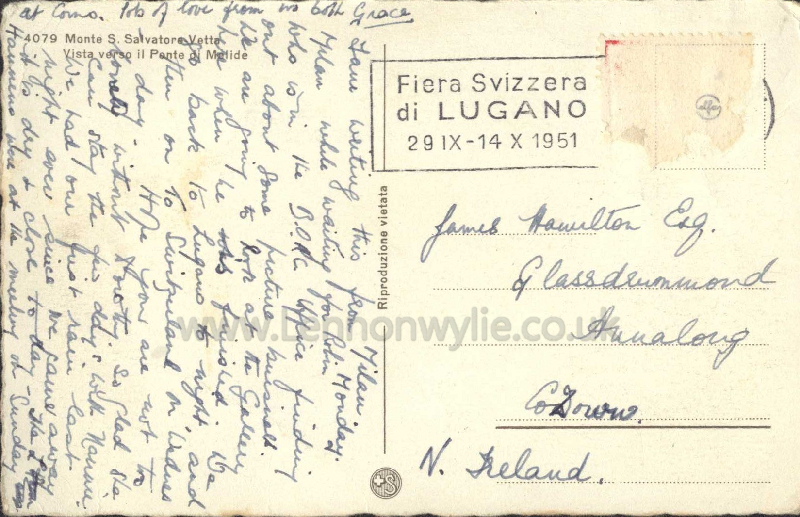 4079 Monte S. Salvatore Vetta
Vista verso il Ponte di Melide
Fiera Svizzera
di LUGANO
29 IX-14 X 1951
Riproduzione vietata
James Hamilton Esq.
Glassdrummond
Annalong
Co Down.
N. Ireland.
Milan
Monday
I am writing this from
Milan while waiting for Robin
who is in the B.O.A.C. Office finding
out about some picture
We are going to look at the Gallery
here when he finished. We
go back to Lugano to night, and
then on to Switzerland on Wednes
day. Hope you are not to
lonely without Dorothy. So glad she
can stay the few days with Nannie.
We had our first rain last
night ever since we came away
it is dry & close to day - The
at the on Sunday
at Como. Lots of love from us both Grace
www.Lennonwylie.co.uk